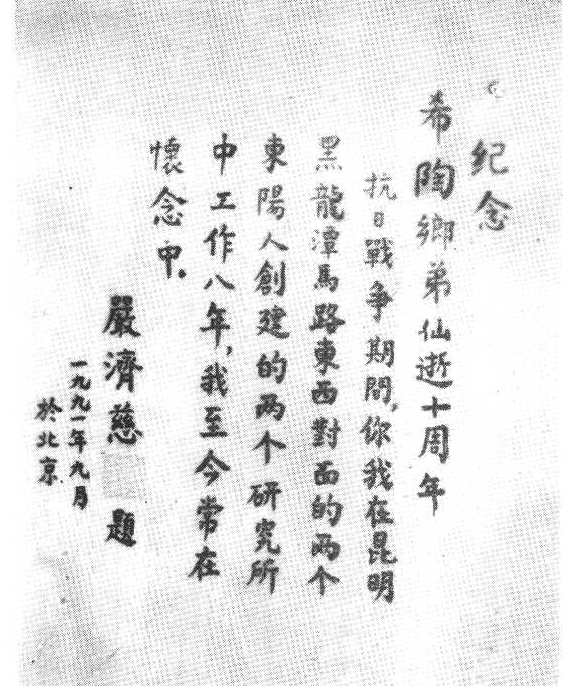 纪念
希陶鄉弟仙逝十周年
抗日戰争期間,你我在昆明
黑龍潭馬路東西對面的两个
東陽人創建的两个研究所
中工作八年,我至今常在
懷念中.
嚴濟慈 題
一九九一年九月
於北京